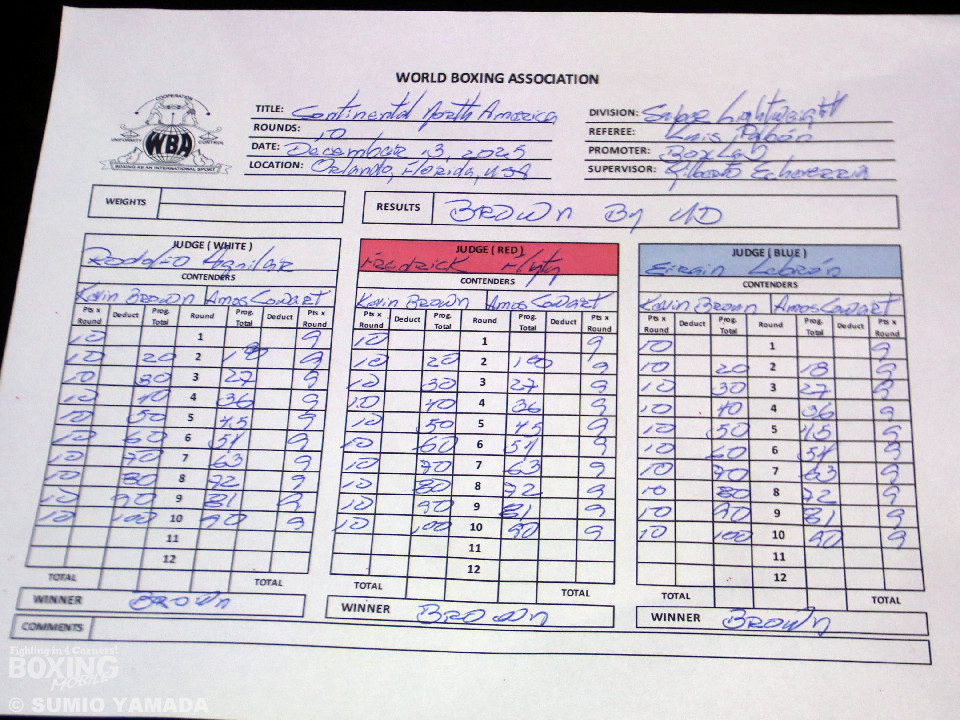 WORLD BOXING ASSOCIATION
COOPERATION
UNIFORMITY WBA CONTROL
BOXING AS AN INTERNATIONAL SPORT
TITLE: Continental North America
ROUNDS: 10
DATE: December 13, 2025
LOCATION: Orlando, Florida, USA
DIVISION: Super Lightweight
REFEREE: Luis Pabón
PROMOTER: BoxLab
SUPERVISOR: Gilberto Echeverria
WEIGHTS
RESULTS BROWN By UD
JUDGE ( WHITE )
Rodolfo Aguilar
CONTENDERS
Kevin BROWN AMOS COWART
Pts x Round Deduct Prog. Total Round Prog. Total Deduct Pts x Round
10 1 9
10 20 2 18 9
10 30 3 27 9
10 40 4 36 9
10 50 5 45 9
10 60 6 54 9
10 70 7 63 9
10 80 8 72 9
10 90 9 81 9
10 100 10 90 9
11
12
TOTAL TOTAL
WINNER BROWN
JUDGE ( RED )
Fredrick
CONTENDERS
Kevin BROWN AMOS COWART
Pts x Round Deduct Prog. Total Round Prog. Total Deduct Pts x Round
10 1 9
10 20 2 18 9
10 30 3 27 9
10 40 4 36 9
10 50 5 45 9
10 60 6 54 9
10 70 7 63 9
10 80 8 72 9
10 90 9 81 9
10 100 10 90 9
11
12
TOTAL TOTAL
WINNER BROWN
JUDGE ( BLUE )
Efrain Lebrón
CONTENDERS
Kevin Brown AMOS COWART
Pts x Round Deduct Prog. Total Round Prog. Total Deduct Pts x Round
10 1 9
10 20 2 18 9
10 30 3 27 9
10 40 4 36 9
10 50 5 45 9
10 60 6 54 9
10 70 7 63 9
10 80 8 72 9
10 90 9 81 9
10 100 10 90 9
11
12
TOTAL TOTAL
WINNER BROWN
COMMENTS
Fighting in 4 Corners!
BOXING
MOBILE
© SUMIO YAMADA